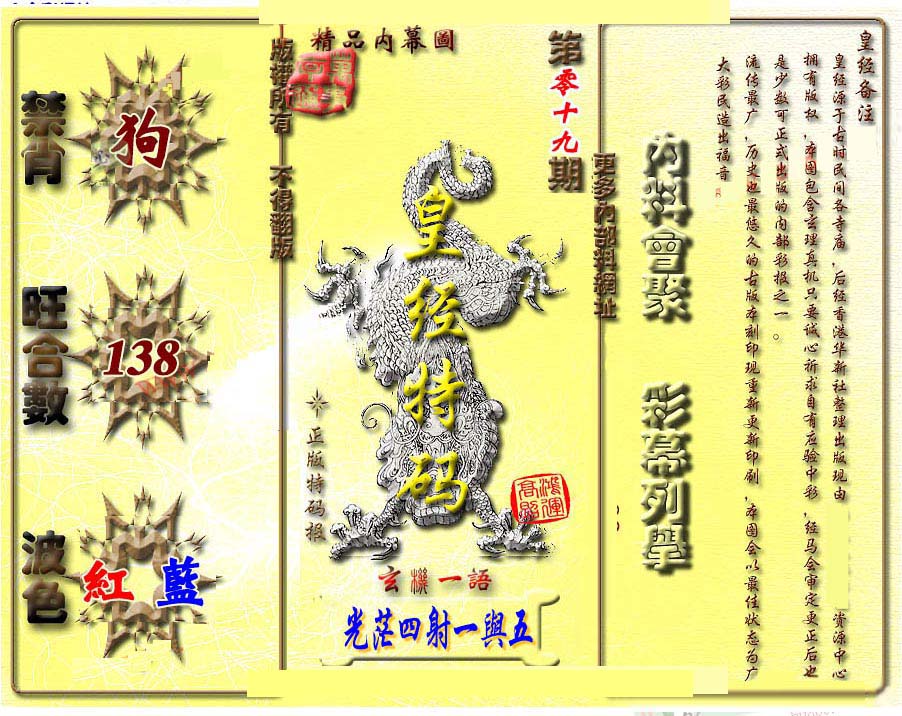 皇经备注
皇经源于古时民间各寺庙，后经香港华新社整理出版现由 资源中心
拥有版权，本图包含玄理真机只要诚心祈求自有应验中彩，经马会审定更正后也
是少数可正式出版的内部彩报之一。
流传最广，历史也最悠久的古版本刻印现重新更新印刷，本图会以最佳状态为广
大彩民造出福音
內料會聚
彩幕列舉
更多內部料網址
第零十九期
精品内幕圖
皇经特码
正版特码报
鴻運高照
玄機一語
光茫四射一與五
版權所有 不得翻版
禁肖
狗
旺合數
138
波色
紅 藍